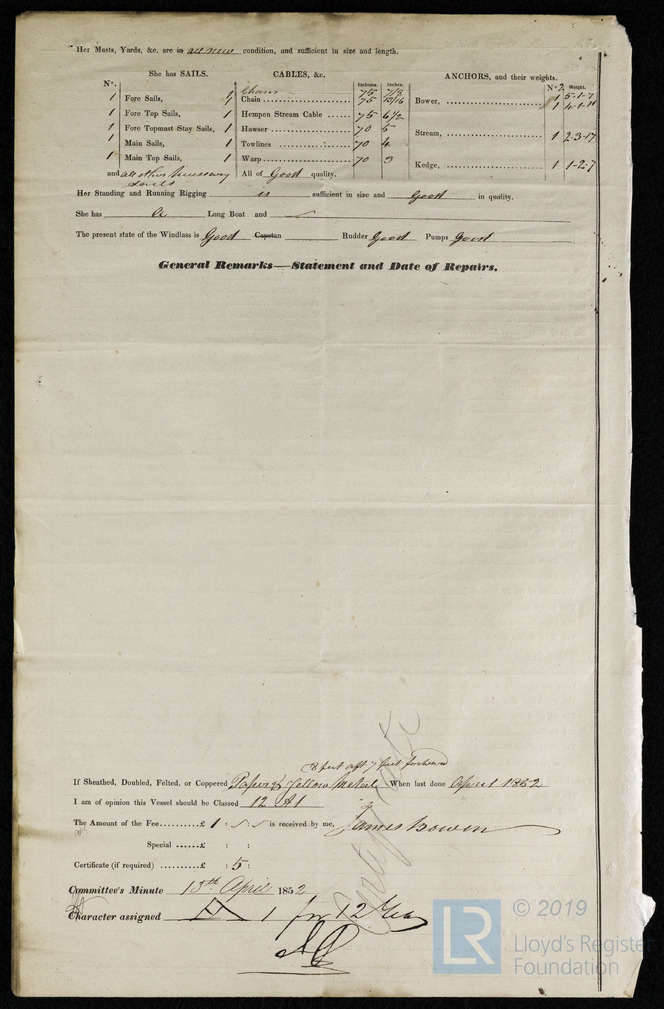 Her Masts, Yards, &c. are in all new condition, and sufficient in size and length.
She has SAILS. CABLES, &c. Fathoms. Inches. ANCHORS, and their weights.
N°. N° Weight.
Chain 75 7/8
1 Fore Sails, 1 Chain 75 13/16 Bower, 1 5-1-7
1 4-1-11
1 Fore Top Sails, 1 Hempen Stream Cable 75 6½
1 Fore Topmast Stay Sails, 1 Hawser 70 5 Stream, 1 2-3-17
1 Main Sails, 1 Towlines 70 4
1 Main Top Sails, 1 Warp 70 3 Kedge, 1 1-2-7
and all other necessary All of Good quality.
Sails
Her Standing and Running Rigging is sufficient in size and Good in quality.
She has a Long Boat and
The present state of the Windlass is Good Capstan Rudder Good Pumps Good
General Remarks—Statement and Date of Repairs.
8 feet aft 7 feet forward
If Sheathed, Doubled, Felted, or Coppered Paper & Yellow Metal When last done April 1852
I am of opinion this Vessel should be Classed 12 A1
The Amount of the Fee..........£ 1 : : is received by me, James Bowen
Special ......£ : :
Certificate (if required) ..........£ : 5 :
Committee's Minute 13th April 1852
Character assigned A 1 for 12 Years
© 2019
Lloyd's Register
Foundation
LR